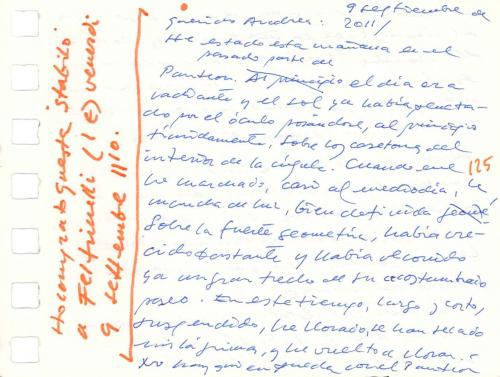 Ho comprato questo stabilo
a Feltrinelli (1 €) venerdì
9 settembre 11/10.
9 septiembre de
2011/
Querido Andrea:
He estado esta mañana en el
pasado parte de
Panteon. Al principio el día era
radiante y el sol ya había penetra-
do por el óculo posándose, al principio
tímidamente, sobre los casetones del
interior de la cúpula. Cuando me 125
he marchado, casi al mediodía, la
mancha de luz, bien definida
sobre la fuerte geometría, había cre-
cido bastante y había recorrido
ya un gran trecho de su acostumbrado
paseo. En este tiempo, largo y corto,
suspendido, he llorado, se han secado
mis lágrimas, y he vuelto a llorar. ¿
No hay quien pueda con el Panteon